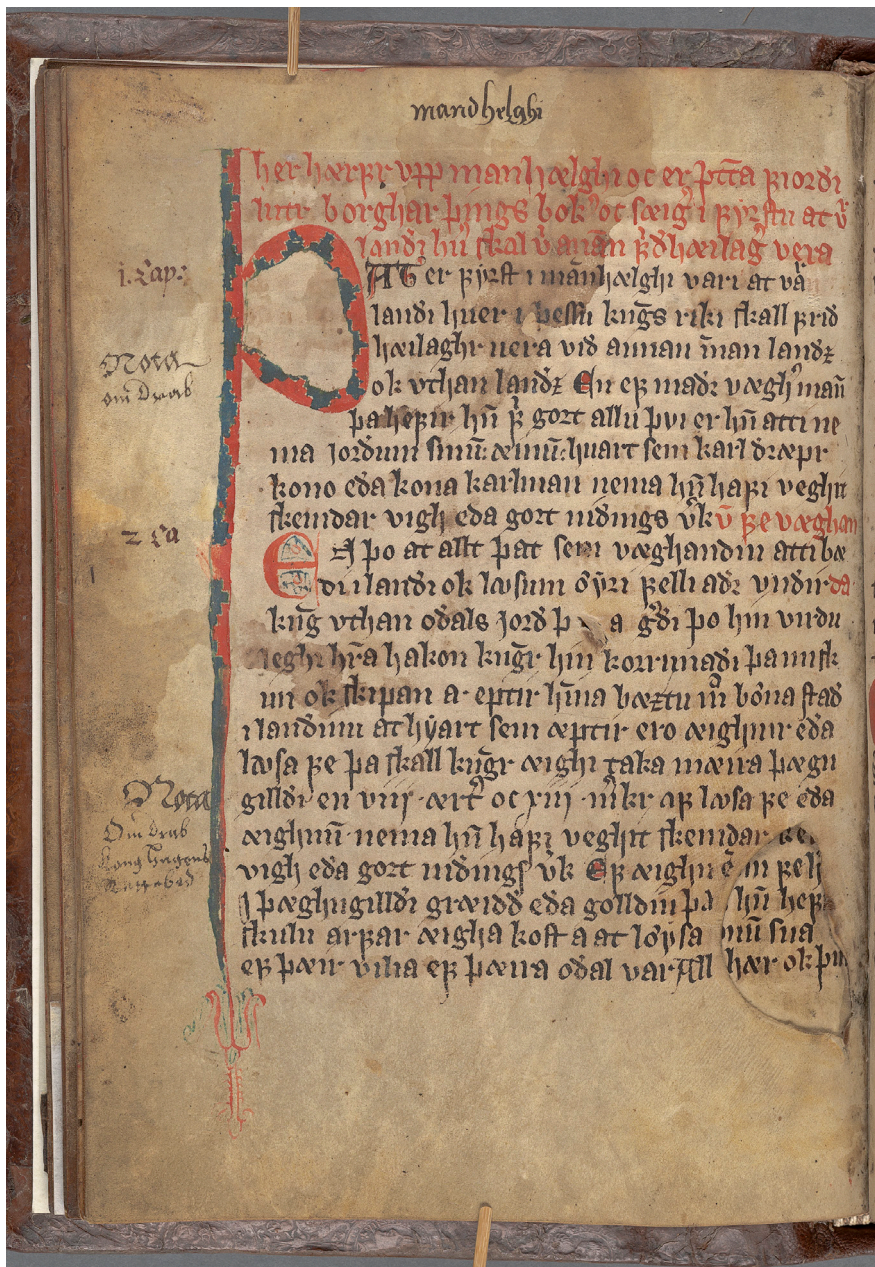 mand helghi
her hæfr vpp manhælghi oc er þetta fiordi
lutr borghar þings bok oc sæigir i fyrstu at v
landi hn skal v annan f d hæilagr vera
j. Cap:
ÞAT er fyrst i manhælghi vari at va
landi huer i þessu kungs riki skall frid
hæilaghr uera vid annan man landz
Nota
om Drab
ok vthan landz En ef madr vægh man
þa hefir hn f gort allu þui er hn atti ne
ma jordum sinum: æinum: huart sem karl dræpr
kono eda kona karlman nema hn hafi veghit
skemdar vigh eda gort nidings vk v fe væghan
2 Ca
E þo at allt þat sem væghandin atti bæ
di i landi ok lausum øyri felli adr vndir da
kung vthan odals jord þ a gdi þo hin virdu
leghi hra hakon kungr hin korrunadi þa misk
un ok skipan a eptir hina bæztu m bona stad
i landinu at huart sem æptir ero æighnir eda
lausa fe þa skall kungr æighi taka mæira þægn
Nota
Om drab
Kong Hagens
gilldi en viij ært oc xiij mkr af lausa fe eda
æighnum nema hn hafi veghit skemdar
vigh eda gort nidings vk Ef æighn e in felj
j þæghngilldi græidd eda golldin þa hn hef
skulu arfar æigha kost a at løysa sua
ef þæir vilia ef þæira odal var All hær ok þin